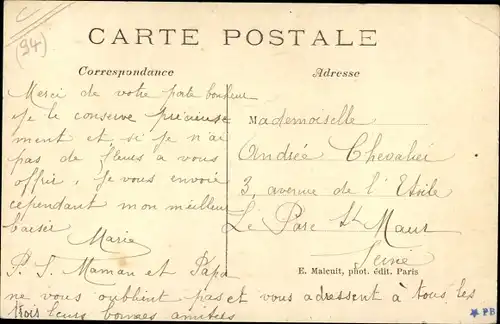 C
(94)
CARTE POSTALE
Correspondance
Adresse
Merci de votre porte bonheur
Je le conserve précieuse
ment et si je n'ai
pas de fleurs a vous
offrir, Je vous envoie
cependant mon meilleur
baiser
Marie
P. S. Maman et Papa
ne vous oublient pas et vous adressent à tous les
trois leurs bonnes amitiés
Mademoiselle
Andrée Chevalier
3, avenue de l'Etoile
Le Parc St Maur
Seine
E. Malcuit, phot. édit. Paris
PB